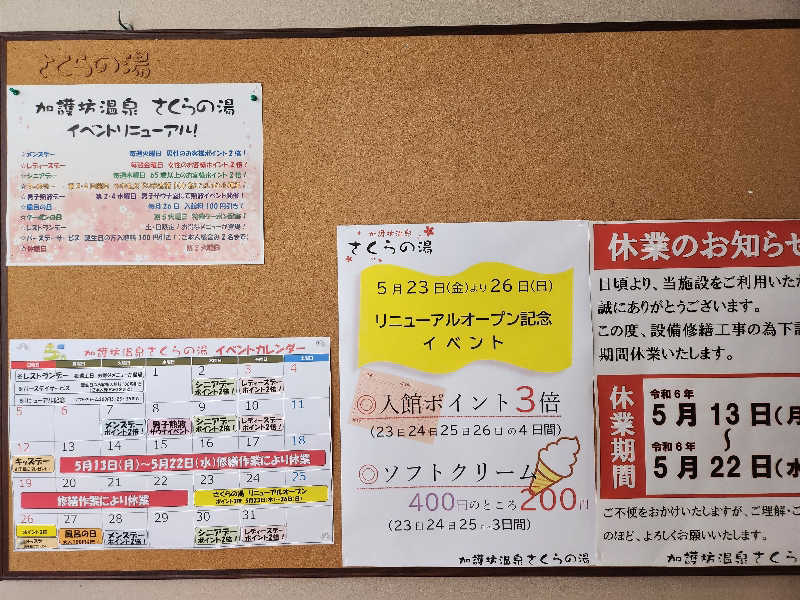 さくらの湯
加護坊温泉 さくらの湯
イベントリニューアル!
☆メンズデー 毎週火曜日 男性のお客様ポイント2倍!
☆レディースデー 毎週金曜日 女性のお客様ポイント2倍!
☆シニアデー 毎週木曜日 65歳以上のお客様ポイント2倍!
☆男子熱波デー 第2・4水曜日 男子サウナ室にて熱波イベント開催!
☆風呂の日 毎月26日 入館料100円引き
☆クーポンの日 第5火曜日 特典クーポン配布!
☆レストランデー 土・日限定!お得なメニューが登場!
☆バースデーサービス 誕生日の方入館料100円引き!(ご本人様含み2名まで)
☆休館日
加護坊温泉さくらの湯 イベントカレンダー
※レストランデー
※バースデイサービス
1 2 3 4
シニアデー
ポイント2倍!
レディースデー
ポイント2倍!
5 6 7 8 9 10 11
メンズデー
ポイント2倍!
男子熱波
サウナイベント
シニアデー
ポイント2倍!
レディースデー
ポイント2倍!
12 13 14 15 16 17 18
キッズデー
5月13日(月)~5月22日(水)修繕作業により休業
19 20 21 22 23 24 25
修繕作業により休業
さくらの湯 リニューアルオープン
ポイント3倍 5月23日(木)~26日(日)
26 27 28 29 30 31
ポイント3倍
風呂の日
メンズデー
ポイント2倍!
シニアデー
ポイント2倍!
レディースデー
ポイント2倍!
加護坊温泉
さくらの湯
5月23日(金)より26日(日)
リニューアルオープン記念
イベント
◎入館ポイント3倍
(23日24日25日26日の4日間)
◎ソフトクリーム
400円のところ200円
(23日24日25日の3日間)
加護坊温泉さくらの湯
休業のお知らせ
日頃より、当施設をご利用いただ
誠にありがとうございます。
この度、設備修繕工事の為下記
期間休業いたします。
休業期間
令和6年
5月13日(月
~
令和6年
5月22日(水
ご不便をおかけいたしますが、ご理解・ご
のほど、よろしくお願いいたします。
加護坊温泉さくら